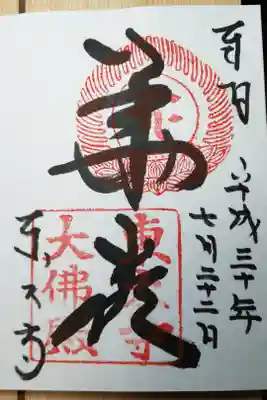 奉拝
平成三十年
七月二十二日
華嚴
東大寺
東大寺
大佛殿